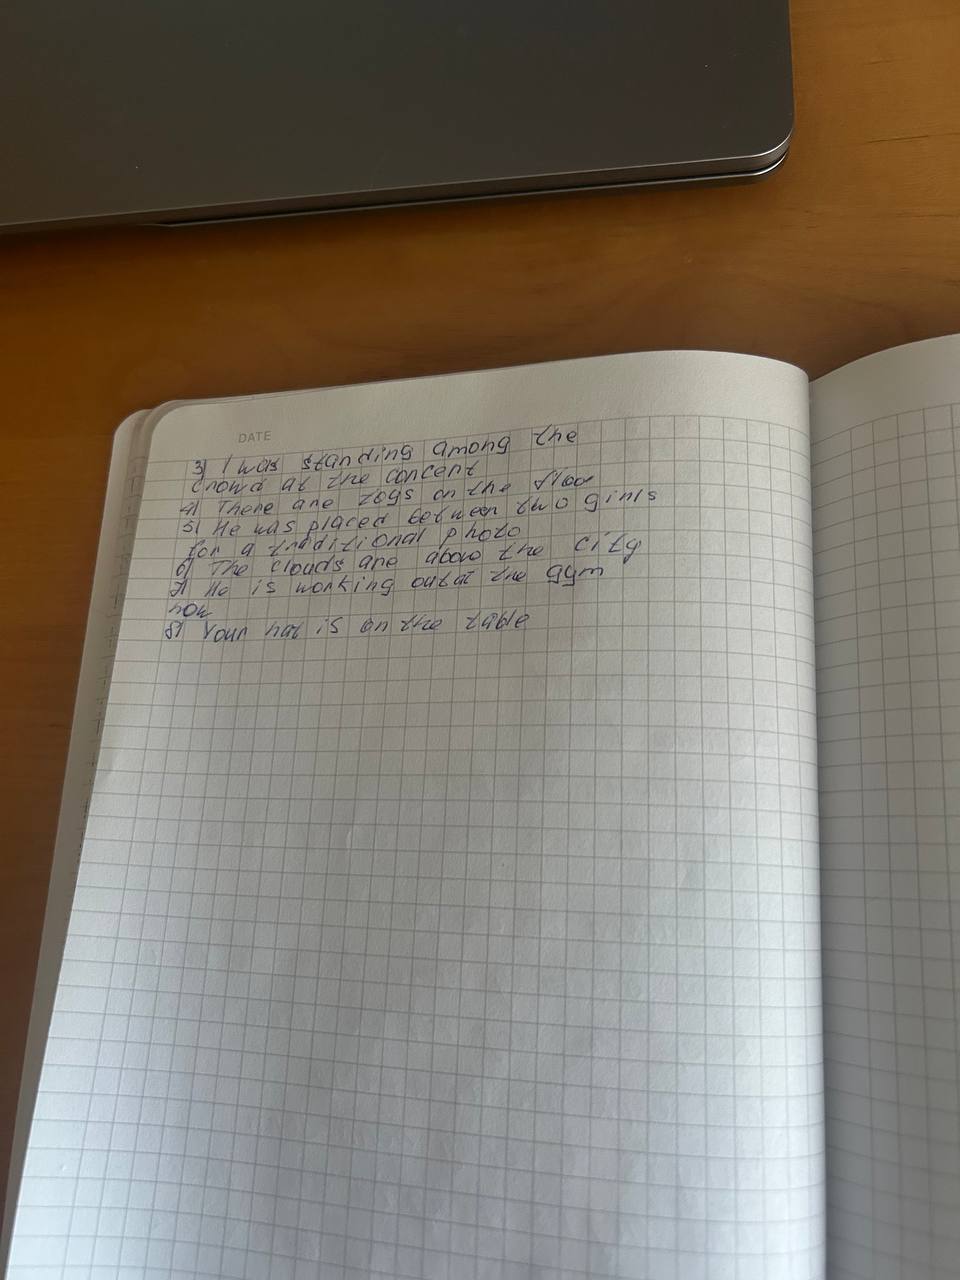 DATE
3) I was standing among the
crowd at the concert
4) There are toys on the floor
5) He was placed between two girls
for a traditional photo
6) The clouds are above the city
7) He is working out at the gym
now
8) Your hat is on the table